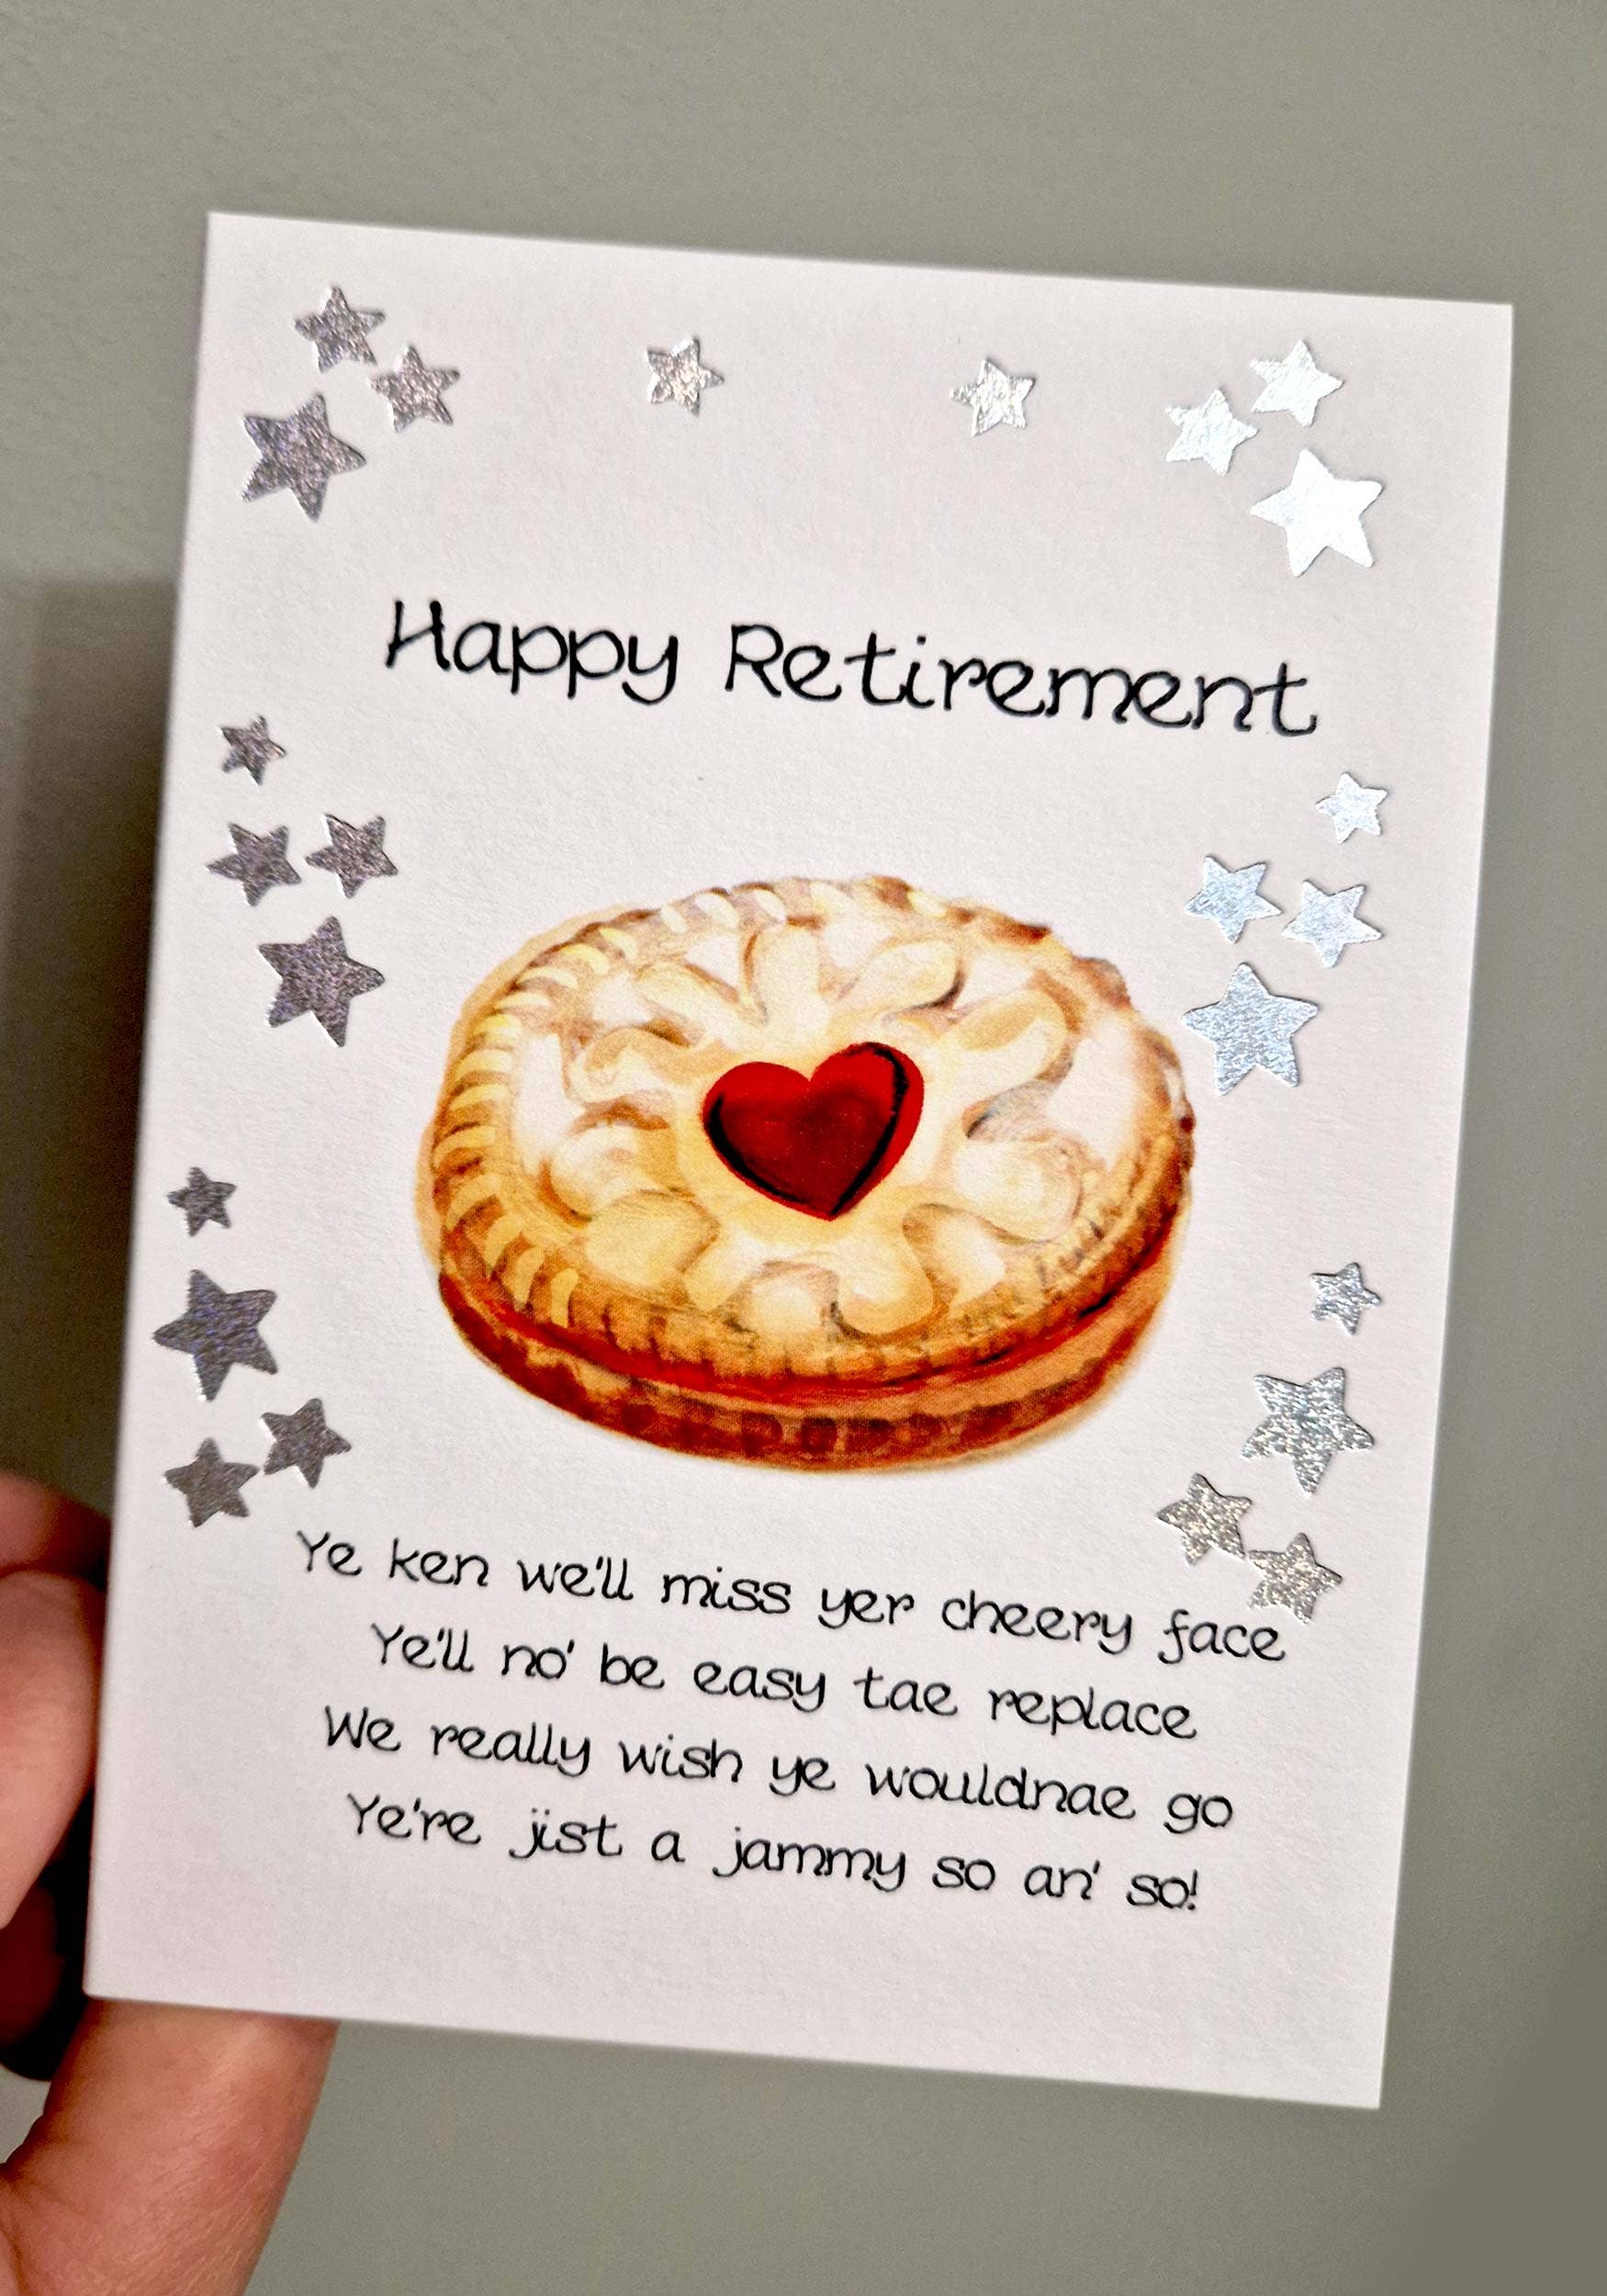 Happy Retirement
Ye ken we'll miss yer cheery face
Ye'll no' be easy tae replace
We really wish ye wouldnae go
Ye're jist a jammy so an' so!